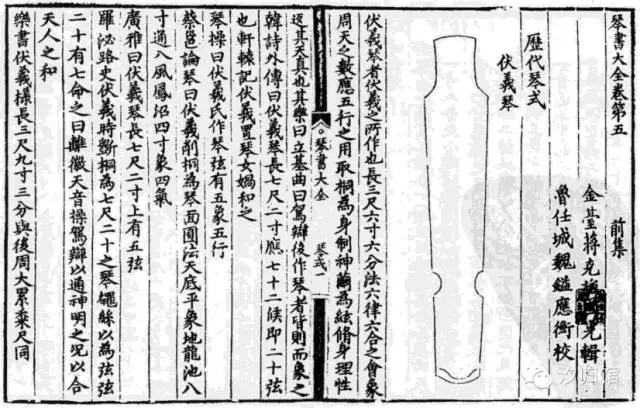 琴書大全卷第五
前集
金臺蔣克輯
魯任城魏鎰應衡校
歷代琴式
伏羲琴
伏羲琴者伏羲之所作也長三尺六寸六分法六律六合之會象
周天之數應五行之用取桐為身制神繭為絃脩身理性
琴書大全 琴式 一
返其天真也其樂曰立基曲曰駕辯後作琴者皆則而象之
韓詩外傳曰伏羲琴長七尺二寸應七十二候即二十弦
也軒轅記伏羲置琴女媧和之
琴操曰伏羲氏作琴弦有五象五行
蔡邕論琴曰伏羲削桐為琴面圓法天底平象地龍池八
寸通八風鳳沼四寸象四氣
廣雅曰伏羲琴長七尺二寸上有五弦
羅泌路史伏羲時斲桐為七尺二十之琴繩絲以為弦弦
二十有七命之曰離徽天音操駕辯以通神明之况以合
天人之和
樂書伏羲樣長三尺九寸三分與後周大累黍尺同